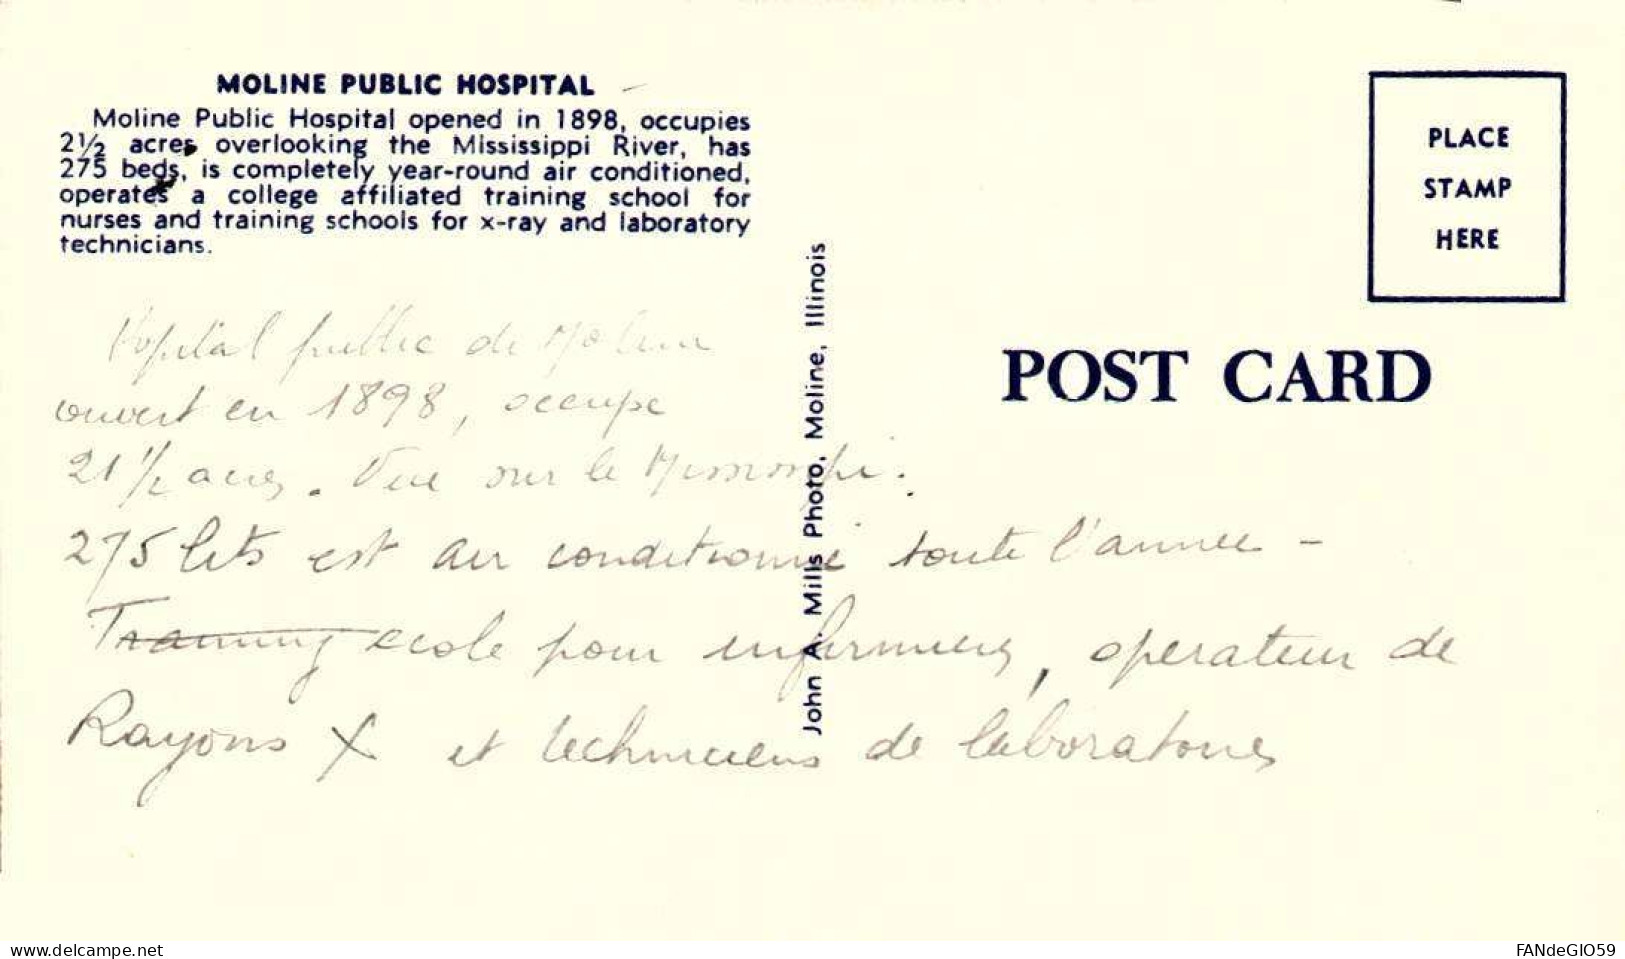 MOLINE PUBLIC HOSPITAL
Moline Public Hospital opened in 1898, occupies
2½ acres overlooking the Mississippi River, has
275 beds, is completely year-round air conditioned,
operates a college affiliated training school for
nurses and training schools for x-ray and laboratory
technicians.
John A. Mills Photo, Moline, Illinois
PLACE
STAMP
HERE
POST CARD
Hopital public de Moline
ouvert en 1898, occupe
21 1/2 acres. Vue sur le Missisipi.
275 lits est air conditionné toute l'année -
Training ecole pour infirmieres, operateur de
Rayons X et techniciens de laboratoires
www.delcampe.net
FANdeGIO59